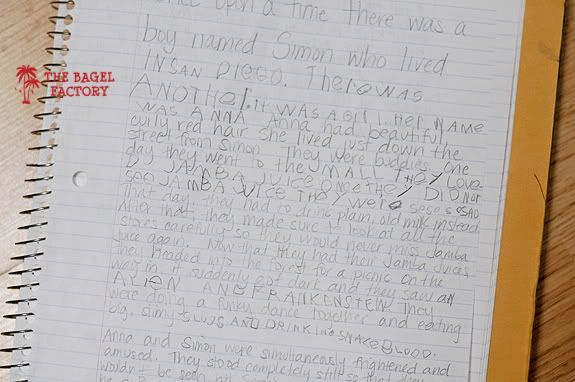 THE BAGEL
FACTORY
once upon a time there was a
boy named Simon who lived
IN SAN DIEGO. There WAS
ANOTHER. it WAS A GIrl. Her NAME
WAS ANNA. Anna had beautiful
curly red hair she lived just down the
street from Simon. They were buddies. One
day they went to the SMALL THEY Love
JAMBA JUICE Once they DID Not
See JAMBA JUICE They were so so so SAD
that day, they had to drink plain, old milk instead.
After that, they made sure to look at all the
stores carefully so they would never miss Jamba
juice again. Now that they had their Jamba Juices
they headed into the forest for a picnic on the
way in, it suddenly got dark and they saw an
ALIEN AND FRANKENSTEIN They
were doing a funky dance together and eating
big, slimy SLUGS AND DRINKING SNAKE BLOOD.
Anna and Simon were simultaneously frightened and
amused. They stood completely still so that they
wouldn't be seen